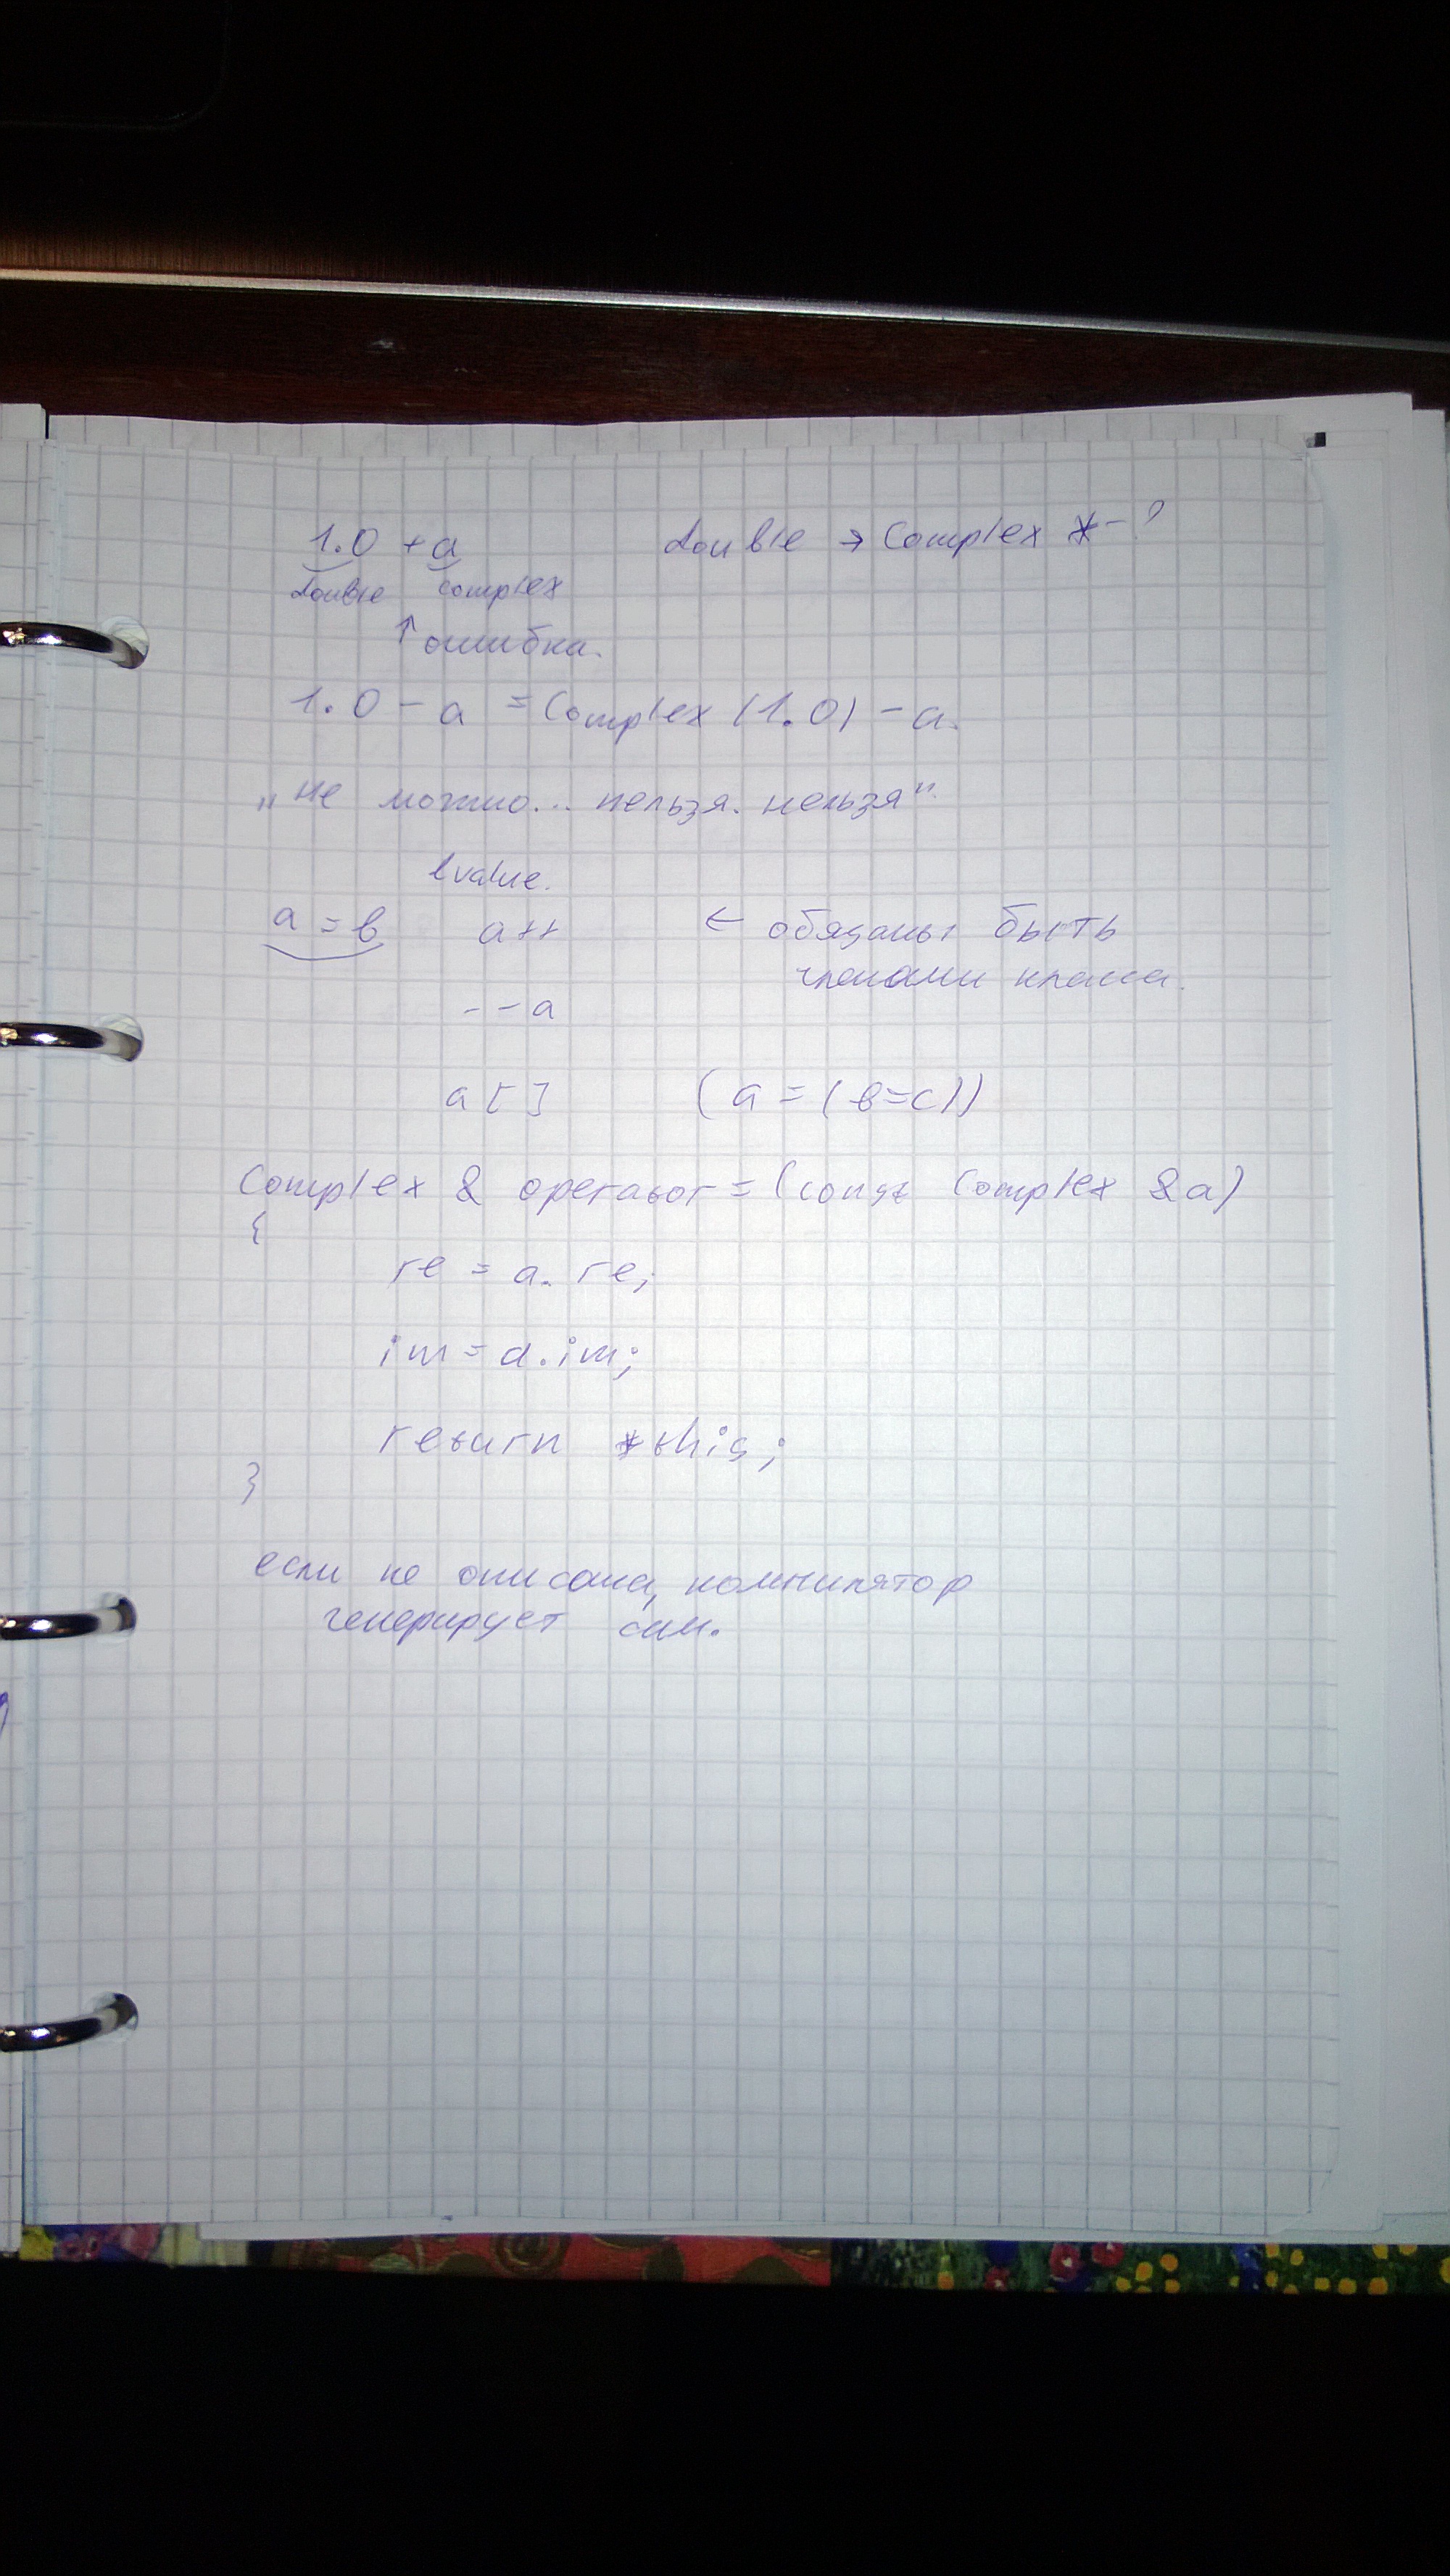 1.0 + a double → Complex * - ?
double complex
↑ ошибка.
1.0 - a = Complex (1.0) - a.
„не можно... нельзя. нельзя“.
lvalue.
a = b a++ ← обязаны быть
членами класса.
--a
a[] (a = (b=c))
Complex & operator = (const Complex &a)
{
re = a.re;
im = a.im;
return *this;
}
если не описана, компилятор
генерирует сам.